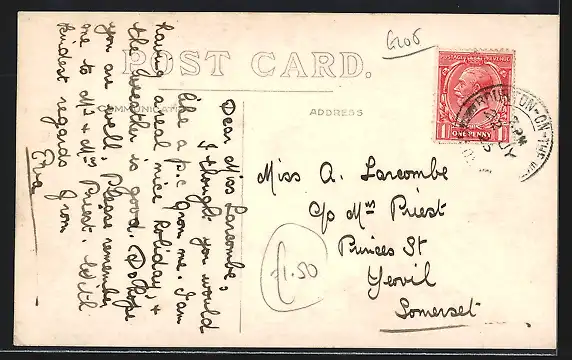 Glos
POST CARD.
COMMUNICATION
ADDRESS
POSTAGE REVENUE
ONE PENNY
BOURTON-ON-THE-W
PM
JY
Dear Miss Larcombe,
I thought you would
like a p.c. from me. I am
having a real nice holiday, &
the weather is good. I Do hope
you are well, Please remember
me to Mr & Mrs Priest. With
kindest regards from
Eva
Miss A. Larcombe
c/o Mrs Priest
Princes St
Yeovil
Somerset
£1.50